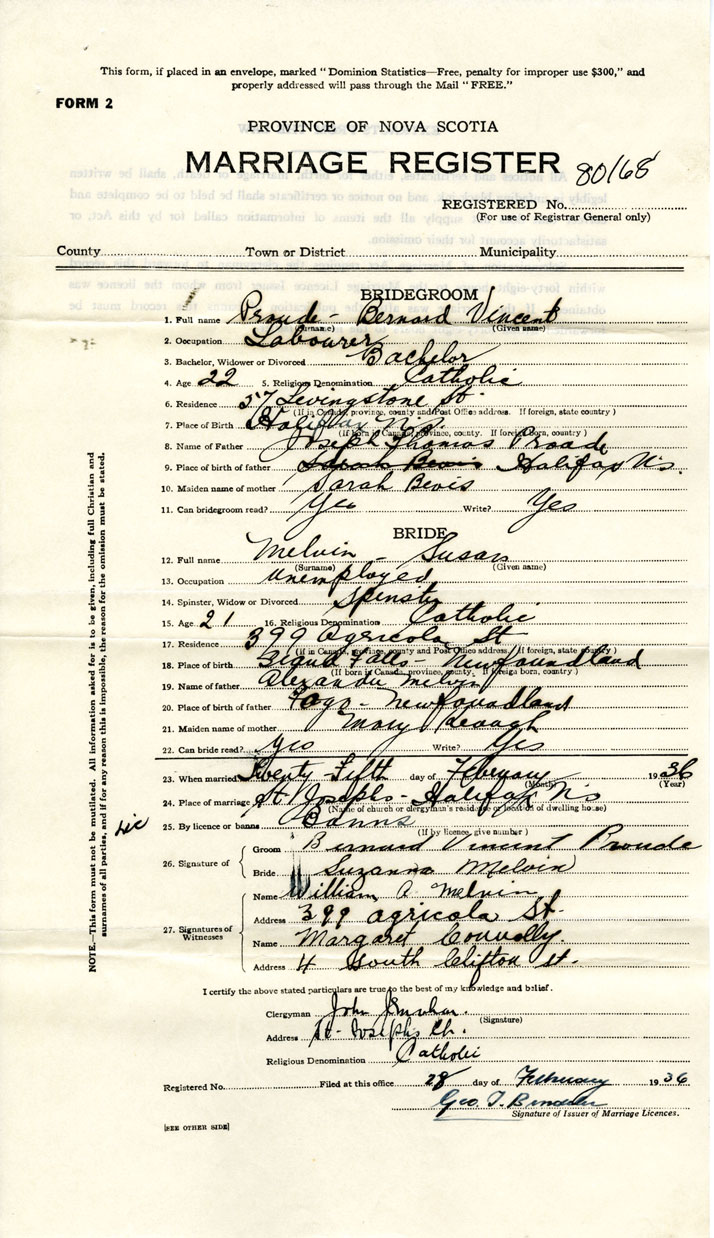 This form, if placed in an envelope, marked "Dominion Statistics—Free, penalty for improper use $300," and
properly addressed will pass through the Mail "FREE."
FORM 2
PROVINCE OF NOVA SCOTIA
MARRIAGE REGISTER 80/68
REGISTERED No.
(For use of Registrar General only)
County Town or District Municipality
BRIDEGROOM
1. Full name Proude - Bernard Vincent
(Surname) (Given name)
2. Occupation Labourer
3. Bachelor, Widower or Divorced Bachelor
4. Age 22 5. Religious Denomination Catholic
6. Residence 57 Levingstone St.
(If in Canada, province, county and Post Office address. If foreign, state country)
7. Place of Birth Halifax N.S.
(If born in Canada, province, county. If foreign born, country)
8. Name of Father Joseph Thomas Proude
9. Place of birth of father Sarah Bevis Halifax N.S.
10. Maiden name of mother Sarah Bevis
11. Can bridegroom read? Yes Write? Yes
BRIDE
12. Full name Melvin - Susan
(Surname) (Given name)
13. Occupation unemployed
14. Spinster, Widow or Divorced Spinster
15. Age 21 16. Religious Denomination Catholic
17. Residence 399 Agricola St
(If in Canada, province, county and Post Office address. If foreign, state country)
18. Place of birth Falls - Newfoundland
(If born in Canada, province, county. If foreign born, country)
19. Name of father Alexander Melvin
20. Place of birth of father Fogo - Newfoundland
21. Maiden name of mother Mary Keough
22. Can bride read? Yes Write? Yes
23. When married Twenty-Fifth day of February 1936
(Month) (Year)
24. Place of marriage St Josephs - Halifax N.S
(Name of church or clergyman's residence or location of dwelling house)
Lic 25. By licence or banns Banns
(If by licence, give number)
26. Signature of
Groom Bernard Vincent Proude
Bride Suzanna Melvin
27. Signatures of Witnesses
Name William A Melvin
Address 399 Agricola St.
Name Margaret Connolly.
Address 4 South Clifton St.
I certify the above stated particulars are true to the best of my knowledge and belief.
Clergyman John
(Signature)
Address St. Josephs Ch.
Religious Denomination Catholic
Registered No. Filed at this office 28 day of February 1936
Geo. T.
Signature of Issuer of Marriage Licences.
[SEE OTHER SIDE]
NOTE.—This form must not be mutilated. All information asked for is to be given, including full Christian and
surnames of all parties, and if for any reason this is impossible, the reason for the omission must be stated.